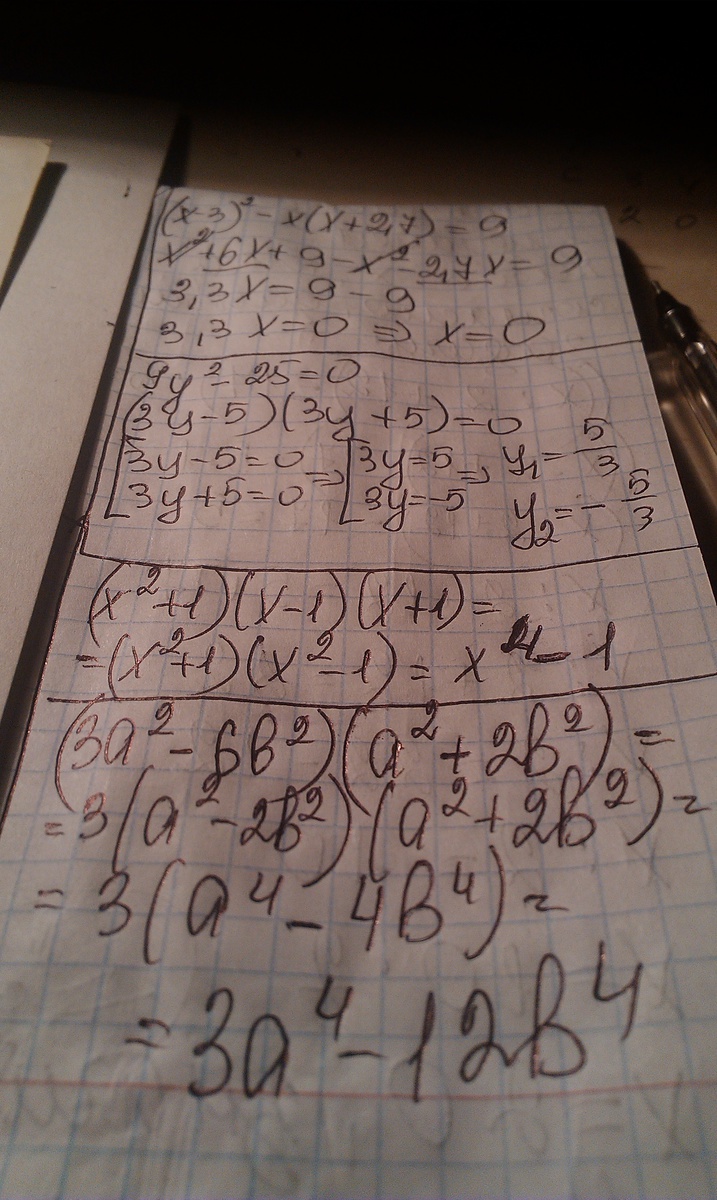 (x-3)² - x(x+2,7) = 9
x² + 6x + 9 - x² - 2,7x = 9
3,3x = 9 - 9
3,3x = 0 ⇒ x = 0
9y² - 25 = 0
(3y - 5)(3y + 5) = 0
[3y - 5 = 0 ⇒ [3y = 5 ⇒ y₁ = 5/3
[3y + 5 = 0 [3y = -5 y₂ = - 5/3
(x² + 1)(x - 1)(x + 1) =
= (x² + 1)(x² - 1) = x⁴ - 1
(3a² - 6b²)(a² + 2b²) =
= 3(a² - 2b²)(a² + 2b²) =
= 3(a⁴ - 4b⁴) =
= 3a⁴ - 12b⁴